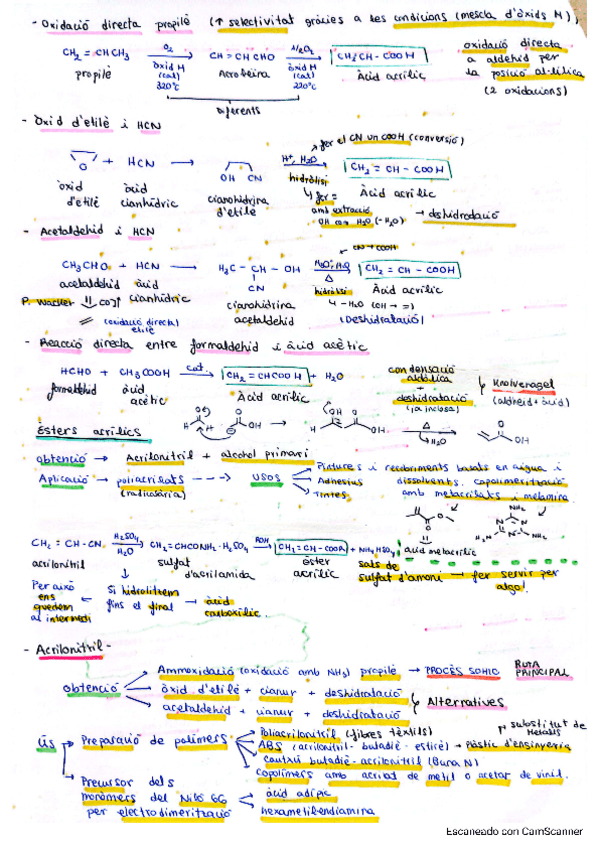 - Oxidació directa propilè (↑ selectivitat gràcies a les condicions (mescla d'òxids M),
CH₂ = CHCH₃ → O₂ òxid M (cat) 320°C → CH = CH CHO → ½O₂ òxid M (cat) 220°C → CH₂=CH - COOH
propilè Acroleïna Àcid acrílic
oxidació directa
a aldehid per
la posició al·lílica
(2 oxidacions)
Diferents
- Òxid d'etilè i HCN
per el CN un COOH (conversió)
O + HCN → OH CN → H⁺, H₂O hidròlisi → CH₂ = CH - COOH
òxid d'etilè àcid cianhídric cianohidrina d'etilè Àcid acrílic
amb extracció → deshidratació
OH com H₂O (-H₂O)
- Acetaldehid i HCN
CN → COOH
CH₃CHO + HCN → H₃C - CH - OH → Δ hidròlisi → CH₂ = CH - COOH
CN
acetaldehid àcid cianhídric cianohidrina acetaldehid Àcid acrílic
-H₂O (OH → =)
(Deshidratació)
P. Wacker
(oxidació directa)
etilè
- Reacció directa entre formaldehid i àcid acètic
HCHO + CH₃COOH → cat. → CH₂ = CHCOOH + H₂O
formaldehid àcid acètic Àcid acrílic
condensació
aldòlica
+
deshidratació
(ja inclosa)
Knolvenagel
(aldehid + àcid)
H H O OH OH O OH Δ H₂O O OH
Èsters acrílics
obtenció → Acrilonitril + alcohol primari
Aplicació → poliacrilats (radicalària) ---> USOS
Pintures i recobriments basats en aigua i
dissolvents. Copolimerització
amb metacrilats i melamina
Adhesius
Tintes
NH₂ N N H₂N N NH₂
CH₂ = CH - CN → H₂SO₄ H₂O → CH₂ = CHCONH₂ · H₂SO₄ → ROH → CH₂ = CH - COOR + NH₄HSO₄
àcid metacrílic
acrilonitril sulfat d'acrilamida èster acrílic
sals de
sulfat d'amoni → fer servir per
algo!
Per això
ens
quedem
al intermedi
Si hidrolitzem
fins el final → àcid
carboxílic.
- Acrilonitril -
obtenció
Ammoxidació (oxidació amb NH₃) propilè → PROCÈS SOHIO RUTA PRINCIPAL
òxid d'etilè + cianur + deshidratació
acetaldehid + cianur + deshidratació
Alternatives
ÚS
Preparació de polímers
Poliacrilonitril (fibres tèxtils)
ABS (acrilonitril - butadiè - estirè) → Plàstic d'enginyeria
substitut de
Metalls
cautxú butadiè - acrilonitril (Buna N)
copolímers amb acrilat de metil o acetat de vinil.
Precursor dels
monòmers del Niló 66
per electrodimerització
àcid adípic
hexametilendiamina
Escaneado con CamScanner